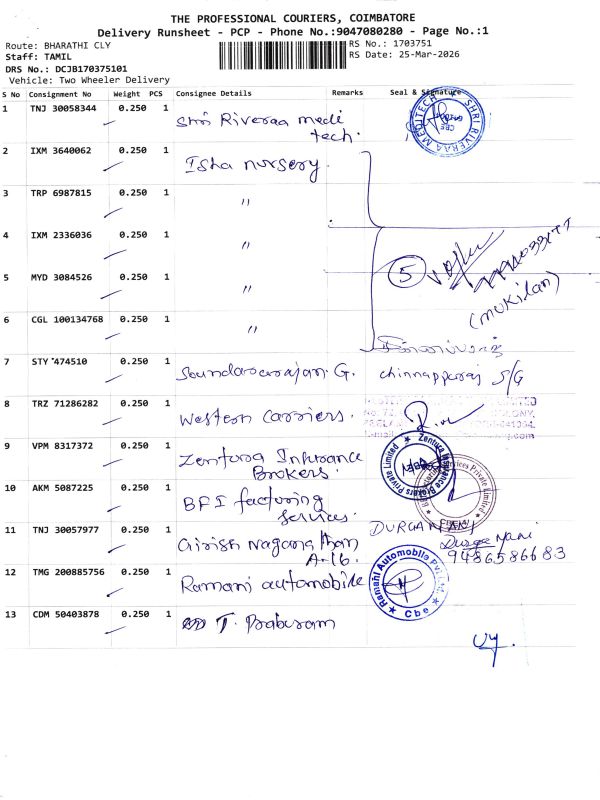 THE PROFESSIONAL COURIERS, COIMBATORE
Delivery Runsheet - PCP - Phone No.:9047080280 - Page No.:1
Route: BHARATHI CLY
RS No.: 1703751
Staff: TAMIL
RS Date: 25-Mar-2026
DRS No.: DCJB170375101
Vehicle: Two Wheeler Delivery
S No Consignment No Weight PCS Consignee Details Remarks Seal & Signature
1 TNJ 30058344 0.250 1 Shri Riveraa medi
tech.
SHRI RIVERAA MEDITECH
CBE
2 IXM 3640062 0.250 1 Isha nursery.
3 TRP 6987815 0.250 1 "
4 IXM 2336036 0.250 1 "
5 MYD 3084526 0.250 1 " 5
(mukilan)
6 CGL 100134768 0.250 1 "
7 STY 474510 0.250 1 Soundararajan. G. chinnapparaj S/G
8 TRZ 71286282 0.250 1 Western carriers.
9 VPM 8317372 0.250 1 Zentura Insurance
Brokers.
Zentura Insurance Brokers Private Limited
10 AKM 5087225 0.250 1 BFI factoring
services.
Services Private Limited
11 TNJ 30057977 0.250 1 Girish Nagarathan
A-16.
Durga Mani
9486586683
12 TMG 200885756 0.250 1 Ramani automobile
Ramani Automobile Pvt. Ltd
Cbe
13 CDM 50403878 0.250 1 T. Prabiram